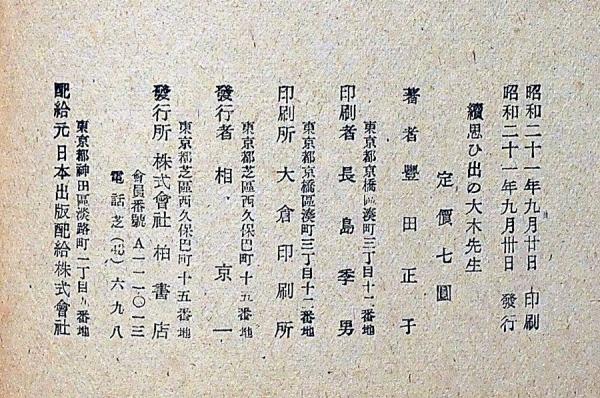 昭和二十一年九月廿日 印刷
昭和二十一年九月卅日 發行
續思ひ出の大木先生
定價七圓
著者 豐田正子
東京都京橋區湊町三丁目十二番地
印刷者 長島季男
東京都京橋區湊町三丁目十二番地
印刷所 大倉印刷所
東京都芝區西久保巴町十五番地
發行者 相京一
東京都芝區西久保巴町十五番地
發行所 株式會社柏書店
會員番號 A一一一〇一三
電話芝(43)六九八
東京都神田區淡路町二丁目九番地
配給元 日本出版配給株式會社